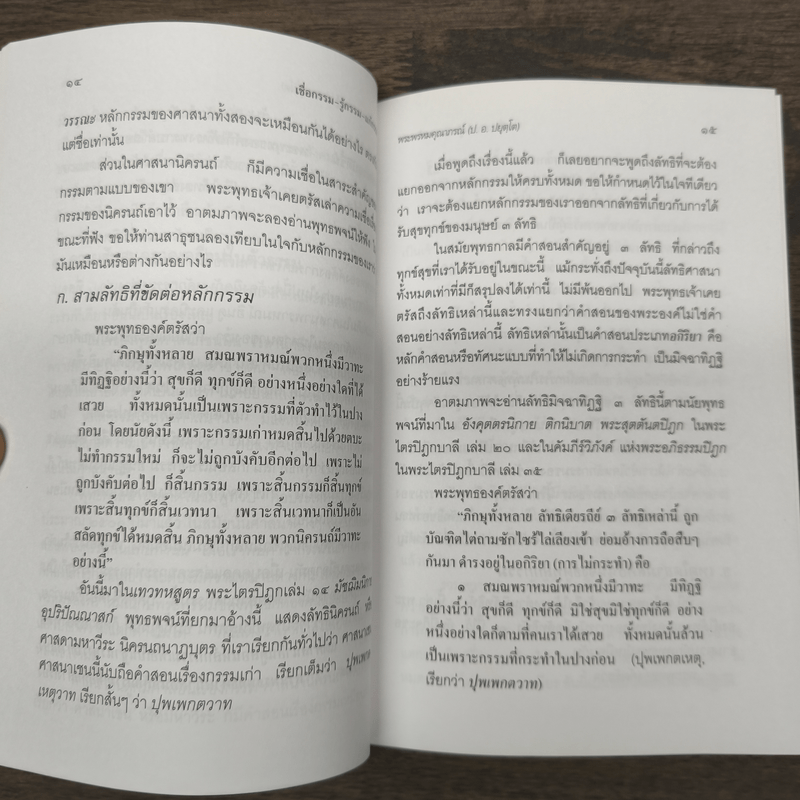 ๑๔
เชื่อกรรม-รู้กรรม-
วรรณะ หลักกรรมของศาสนาทั้งสองจะเหมือนกันได้อย่างไร
แต่ชื่อเท่านั้น
ส่วนในศาสนานิครนถ์ ก็มีความเชื่อในสาระสำคัญ
กรรมตามแบบของเขา พระพุทธเจ้าเคยตรัสเล่าความเชื่อ
กรรมของนิครนถ์เอาไว้ อาตมภาพจะลองอ่านพุทธพจน์ให้ฟัง
ขณะที่ฟัง ขอให้ท่านสาธุชนลองเทียบในใจกับหลักกรรมของเรา
มันเหมือนหรือต่างกันอย่างไร
ก. สามลัทธิที่ขัดต่อหลักกรรม
พระพุทธองค์ตรัสว่า
“ภิกษุทั้งหลาย สมณพราหมณ์พวกหนึ่งมีวาทะ
มีทิฏฐิอย่างนี้ว่า สุขก็ดี ทุกข์ก็ดี อย่างหนึ่งอย่างใดที่ได้
เสวย ทั้งหมดนั้นเป็นเพราะกรรมที่ตัวทำไว้ในปาง
ก่อน โดยนัยดังนี้ เพราะกรรมเก่าหมดสิ้นไปด้วยตบะ
ไม่ทำกรรมใหม่ ก็จะไม่ถูกบังคับอีกต่อไป เพราะไม่
ถูกบังคับต่อไป ก็สิ้นกรรม เพราะสิ้นกรรมก็สิ้นทุกข์
เพราะสิ้นทุกข์ก็สิ้นเวทนา เพราะสิ้นเวทนาก็เป็นอัน
สลัดทุกข์ได้หมดสิ้น ภิกษุทั้งหลาย พวกนิครนถ์มีวาทะ
อย่างนี้”
อันนี้มาในเทวทหสูตร พระไตรปิฎกเล่ม ๑๔ มัชฌิมนิกาย
อุปริปัณณาสก์ พุทธพจน์ที่ยกมาอ้างนี้ แสดงลัทธินิครนถ์
ศาสดามหาวีระ นิครนถนาฏบุตร ที่เราเรียกกันทั่วไปว่า
ศาสนาเชนนี้นับถือคำสอนเรื่องกรรมเก่า เรียกเต็มว่า ปุพเพกต
เหตุวาท เรียกสั้นๆ ว่า ปุพเพกตวาท
พระพรหมคุณาภรณ์ (ป. อ. ปยุตฺโต)
๑๕
เมื่อพูดถึงเรื่องนี้แล้ว ก็เลยอยากจะพูดถึงลัทธิที่จะต้อง
แยกออกจากหลักกรรมให้ครบทั้งหมด ขอให้กำหนดไว้ในใจทีเดียว
ว่า เราจะต้องแยกหลักกรรมของเราออกจากลัทธิที่เกี่ยวกับการได้
รับสุขทุกข์ของมนุษย์ ๓ ลัทธิ
ในสมัยพุทธกาลมีคำสอนสำคัญอยู่ ๓ ลัทธิ ที่กล่าวถึง
ทุกข์สุขที่เราได้รับอยู่ในขณะนี้ แม้กระทั่งถึงปัจจุบันนี้ลัทธิศาสนา
ทั้งหมดเท่าที่มีก็สรุปลงได้เท่านี้ ไม่มีพ้นออกไป พระพุทธเจ้าเคย
ตรัสถึงลัทธิเหล่านี้และทรงแยกว่าคำสอนของพระองค์ไม่ใช่คำ
สอนอย่างลัทธิเหล่านี้ ลัทธิเหล่านั้นเป็นคำสอนประเภทอกิริยา คือ
หลักคำสอนหรือทัศนะแบบที่ทำให้ไม่เกิดการกระทำ เป็นมิจฉาทิฏฐิ
อย่างร้ายแรง
อาตมภาพจะอ่านลัทธิมิจฉาทิฏฐิ ๓ ลัทธินี้ตามนัยพุทธ
พจน์ที่มาใน อังคุตตรนิกาย ติกนิบาต พระสุตตันตปิฎก ในพระ
ไตรปิฎกบาลี เล่ม ๒๐ และในคัมภีร์วิภังค์ แห่งพระอภิธรรมปิฎก
ในพระไตรปิฎกบาลี เล่ม ๓๕
พระพุทธองค์ตรัสว่า
“ภิกษุทั้งหลาย ลัทธิเดียรถีย์ ๓ ลัทธิเหล่านี้ ถูก
บัณฑิตไต่ถามซักไซร้ไล่เลียงเข้า ย่อมอ้างการถือสืบๆ
กันมา ดำรงอยู่ในอกิริยา (การไม่กระทำ) คือ
๑ สมณพราหมณ์พวกหนึ่งมีวาทะ มีทิฏฐิ
อย่างนี้ว่า สุขก็ดี ทุกข์ก็ดี มิใช่สุขมิใช่ทุกข์ก็ดี อย่าง
หนึ่งอย่างใดก็ตามที่คนเราได้เสวย ทั้งหมดนั้นล้วน
เป็นเพราะกรรมที่กระทำในปางก่อน (ปุพเพกตเหตุ,
เรียกว่า ปุพเพกตวาท)